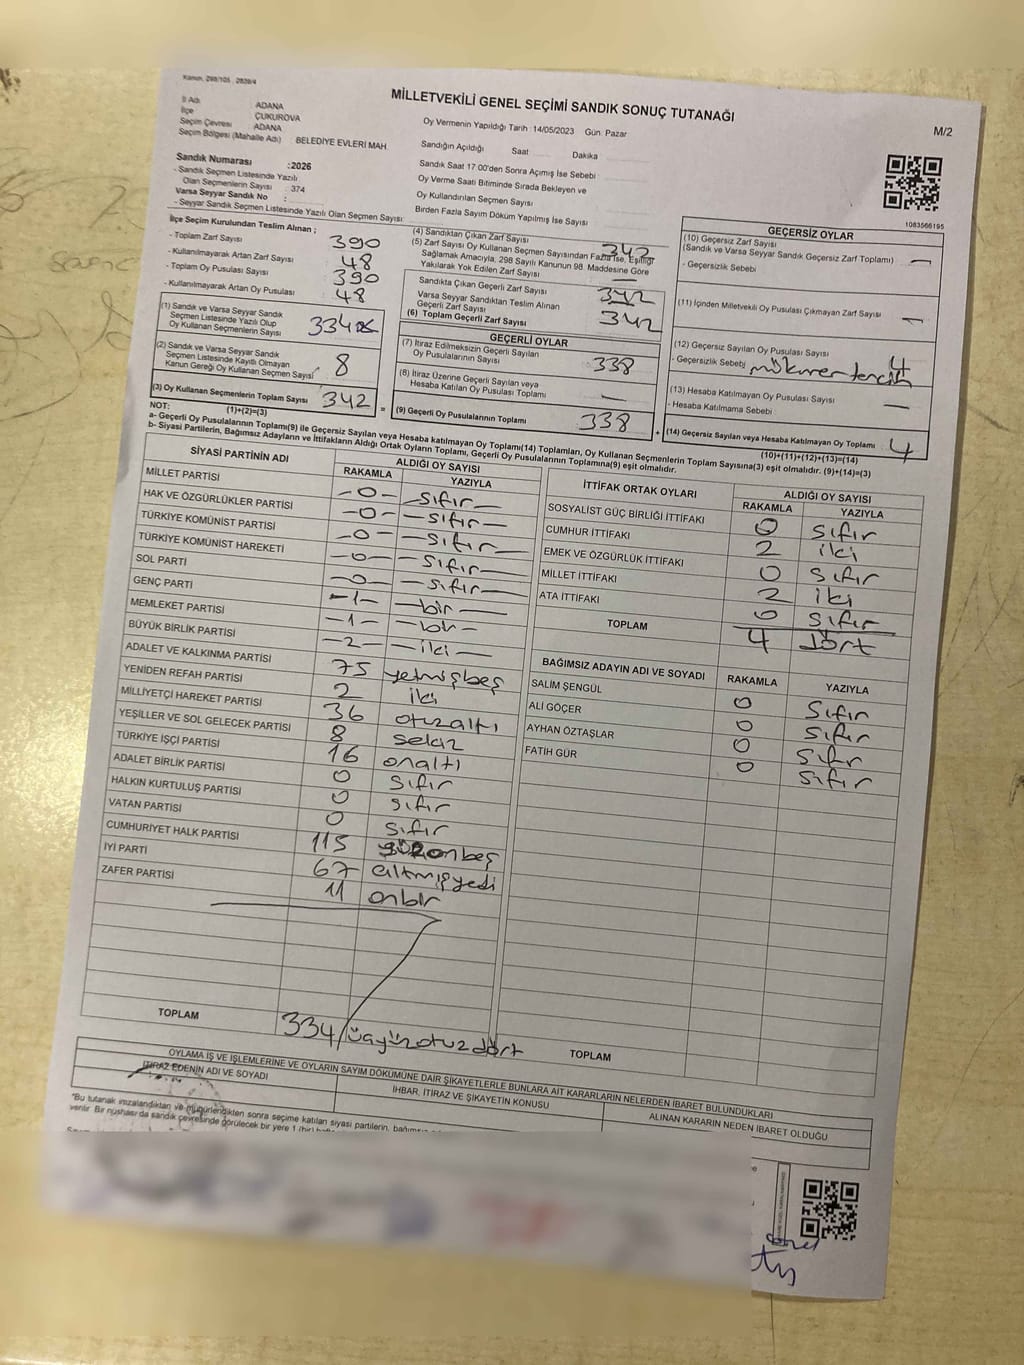 Kanun, 298/105 , 2839/4
MİLLETVEKİLİ GENEL SEÇİMİ SANDIK SONUÇ TUTANAĞI
M/2
İl Adı ADANA
İlçe ÇUKUROVA
Seçim Çevresi ADANA
Seçim Bölgesi (Mahalle Adı) BELEDİYE EVLERİ MAH.
Sandık Numarası :2026
- Sandık Seçmen Listesinde Yazılı
Olan Seçmenlerin Sayısı : 374
Varsa Seyyar Sandık No :
- Seyyar Sandık Seçmen Listesinde Yazılı Olan Seçmen Sayısı:
Oy Vermenin Yapıldığı Tarih :14/05/2023 Gün: Pazar
Sandığın Açıldığı Saat Dakika
Sandık Saat 17:00'den Sonra Açımış İse Sebebi
Oy Verme Saati Bitiminde Sırada Bekleyen ve
Oy Kullandırılan Seçmen Sayısı
Birden Fazla Sayım Döküm Yapılmış İse Sayısı
1083566195
İlçe Seçim Kurulundan Teslim Alınan ;
- Toplam Zarf Sayısı 390
- Kullanılmayarak Artan Zarf Sayısı 48
- Toplam Oy Pusulası Sayısı 390
- Kullanılmayarak Artan Oy Pusulası 48
(1) Sandık ve Varsa Seyyar Sandık
Seçmen Listesinde Yazılı Olup
Oy Kullanan Seçmenlerin Sayısı 334
(2) Sandık ve Varsa Seyyar Sandık
Seçmen Listesinde Kayıtlı Olmayan
Kanun Gereği Oy Kullanan Seçmen Sayısı 8
(3) Oy Kullanan Seçmenlerin Toplam Sayısı 342
(1)+(2)=(3)
(4) Sandıktan Çıkan Zarf Sayısı 342
(5) Zarf Sayısı Oy Kullanan Seçmen Sayısından Fazla İse, Eşitliği
Sağlamak Amacıyla, 298 Sayılı Kanunun 98. Maddesine Göre
Yakılarak Yok Edilen Zarf Sayısı —
Sandıkta Çıkan Geçerli Zarf Sayısı 342
Varsa Seyyar Sandıktan Teslim Alınan
Geçerli Zarf Sayısı
(6) Toplam Geçerli Zarf Sayısı 342
GEÇERLİ OYLAR
(7) İtiraz Edilmeksizin Geçerli Sayılan
Oy Pusulalarının Sayısı 338
(8) İtiraz Üzerine Geçerli Sayılan veya
Hesaba Katılan Oy Pusulası Toplamı —
= (9) Geçerli Oy Pusulalarının Toplamı 338
GEÇERSİZ OYLAR
(10) Geçersiz Zarf Sayısı
(Sandık ve Varsa Seyyar Sandık Geçersiz Zarf Toplamı) —
- Geçersizlik Sebebi
(11) İçinden Milletvekili Oy Pusulası Çıkmayan Zarf Sayısı —
(12) Geçersiz Sayılan Oy Pusulası Sayısı 4
- Geçersizlik Sebebi
(13) Hesaba Katılmayan Oy Pusulası Sayısı —
- Hesaba Katılmama Sebebi
+ (14) Geçersiz Sayılan veya Hesaba Katılmayan Oy Toplamı 4
(10)+(11)+(12)+(13)=(14)
NOT:
a- Geçerli Oy Pusulalarının Toplamı(9) ile Geçersiz Sayılan veya Hesaba katılmayan Oy Toplamı(14) Toplamları, Oy Kullanan Seçmenlerin Toplam Sayısına(3) eşit olmalıdır. (9)+(14)=(3)
b- Siyasi Partilerin, Bağımsız Adayların ve İttifakların Aldığı Ortak Oyların Toplamı, Geçerli Oy Pusulalarının Toplamına(9) eşit olmalıdır.
SİYASİ PARTİNİN ADI ALDIĞI OY SAYISI
RAKAMLA YAZIYLA
MİLLET PARTİSİ -0- sıfır
HAK VE ÖZGÜRLÜKLER PARTİSİ -0- sıfır
TÜRKİYE KOMÜNİST PARTİSİ -0- sıfır
TÜRKİYE KOMÜNİST HAREKETİ -0- sıfır
SOL PARTİ -0- sıfır
GENÇ PARTİ -1- bir
MEMLEKET PARTİSİ -1- bir
BÜYÜK BİRLİK PARTİSİ -2- iki
ADALET VE KALKINMA PARTİSİ 75 yetmişbeş
YENİDEN REFAH PARTİSİ 2 iki
MİLLİYETÇİ HAREKET PARTİSİ 36 otuzaltı
YEŞİLLER VE SOL GELECEK PARTİSİ 8 sekiz
TÜRKİYE İŞÇİ PARTİSİ 16 onaltı
ADALET BİRLİK PARTİSİ 0 sıfır
HALKIN KURTULUŞ PARTİSİ 0 sıfır
VATAN PARTİSİ 0 sıfır
CUMHURİYET HALK PARTİSİ 115 yüzonbeş
İYİ PARTİ 67 altmışyedi
ZAFER PARTİSİ 11 onbir
TOPLAM 334 üçyüzotuzdört
İTTİFAK ORTAK OYLARI ALDIĞI OY SAYISI
RAKAMLA YAZIYLA
SOSYALİST GÜÇ BİRLİĞİ İTTİFAKI 0 sıfır
CUMHUR İTTİFAKI 2 iki
EMEK VE ÖZGÜRLÜK İTTİFAKI 0 sıfır
MİLLET İTTİFAKI 2 iki
ATA İTTİFAKI 0 sıfır
TOPLAM 4 dört
BAĞIMSIZ ADAYIN ADI VE SOYADI RAKAMLA YAZIYLA
SALİM ŞENGÜL 0 sıfır
ALİ GÖÇER 0 sıfır
AYHAN ÖZTAŞLAR 0 sıfır
FATİH GÜR 0 sıfır
TOPLAM
OYLAMA İŞ VE İŞLEMLERİNE VE OYLARIN SAYIM DÖKÜMÜNE DAİR ŞİKAYETLERLE BUNLARA AİT KARARLARIN NELERDEN İBARET BULUNDUKLARI
İTİRAZ EDENİN ADI VE SOYADI İHBAR, İTİRAZ VE ŞİKAYETİN KONUSU ALINAN KARARIN NEDEN İBARET OLDUĞU
"Bu tutanak imzalandıktan ve mühürlendikten sonra seçime katılan siyasi partilerin, bağımsız
verilir. Bir nüshası da sandık çevresinde görülecek bir yere 1 (bir)